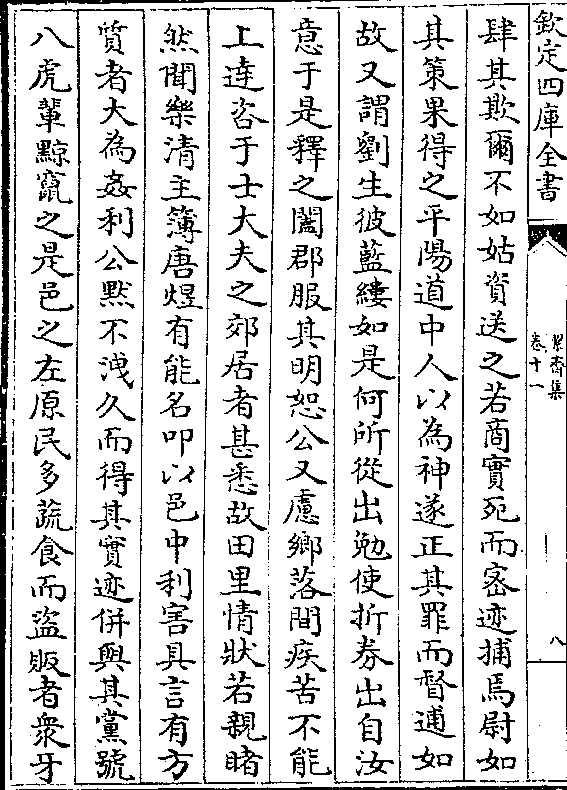 欽定四庫全書
絜齋集
卷十一
八
肆其欺爾不如姑資送之若商實死而密迹捕焉尉如
其策果得之平陽道中人以為神遂正其罪而督逋如
故又謂劉生彼藍縷如是何所從出勉使折券出自汝
意于是釋之闔郡服其明恕公又慮鄉落間疾苦不能
上達咨于士大夫之郊居者甚悉故田里情狀若親睹
然聞樂清主簿唐煜有能名叩以邑中利害具言有方
質者大為姦利公黙不洩久而得其實迹併與其黨號
八虎輩黥竄之是邑之左原民多蔬食而盜販者衆牙